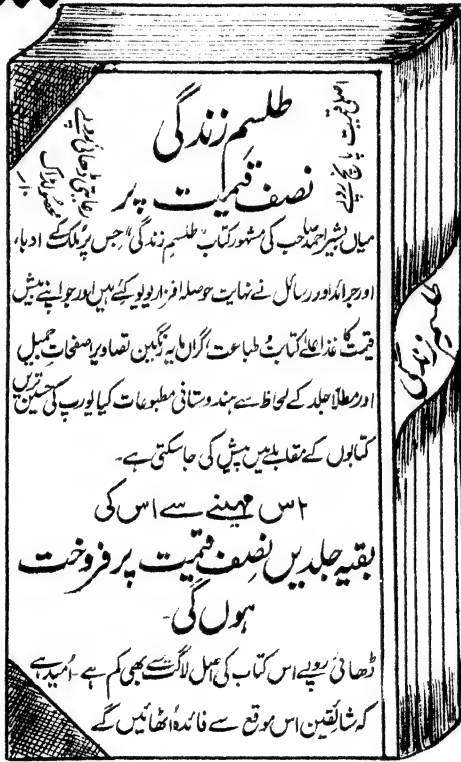 اصلی قیمت پانچ روپے
طلسمِ زندگی
رعایتی ڈھائی روپے
محصول ڈاک ۱۰ر
نصف قیمت پر
میاں بشیر احمد صاحب کی مشہور کتاب "طلسمِ زندگی" جس پر ملک کے ادباء،
اور جرائد اور رسائل نے نہایت حوصلہ افزا ریویو کئے ہیں اور جو اپنے بیش
قیمت کاغذ اعلےٰ کتابت و طباعت گراں مایہ رنگین تصاویر صفحات جمیل
اور مطلّا جلد کے لحاظ سے ہندوستانی مطبوعات کیا یورپ کی حسین ترین
کتابوں کے مقابلے میں پیش کی جا سکتی ہے۔
اس مہینے سے اس کی
بقیہ جلدیں نصف قیمت پر فروخت
ہوں گی۔
ڈھائی روپے اس کتاب کی اصل لاگت سے بھی کم ہے۔ اُمید ہے
کہ شائقین اس موقع سے فائدہ اٹھائیں گے
طلسمِ زندگی